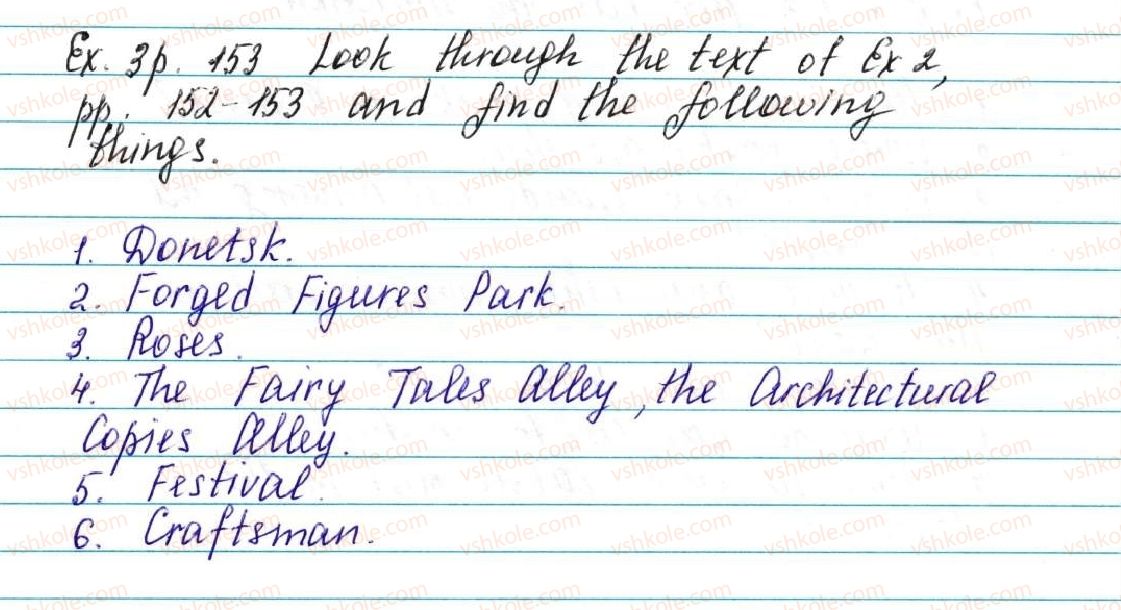 Ex. 3p. 153 Look through the text of Ex 2,
pp. 152-153 and find the following
things.
1. Donetsk.
2. Forged Figures Park.
3. Roses.
4. The Fairy Tales Alley, the Architectural
Copies Alley.
5. Festival.
6. Craftsman.